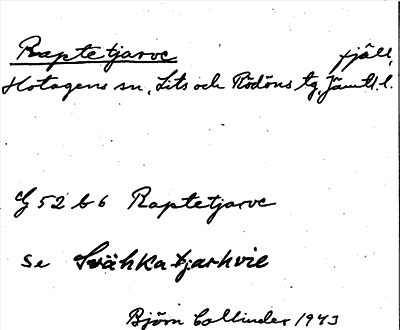 Raptetjarve fjäll,
Hotagens sn, Lits och Rödöns tg, Jämtl. l.
G 52 b 6 Raptetjarve
se Svähkatjarhvie
Björn Collinder 1943